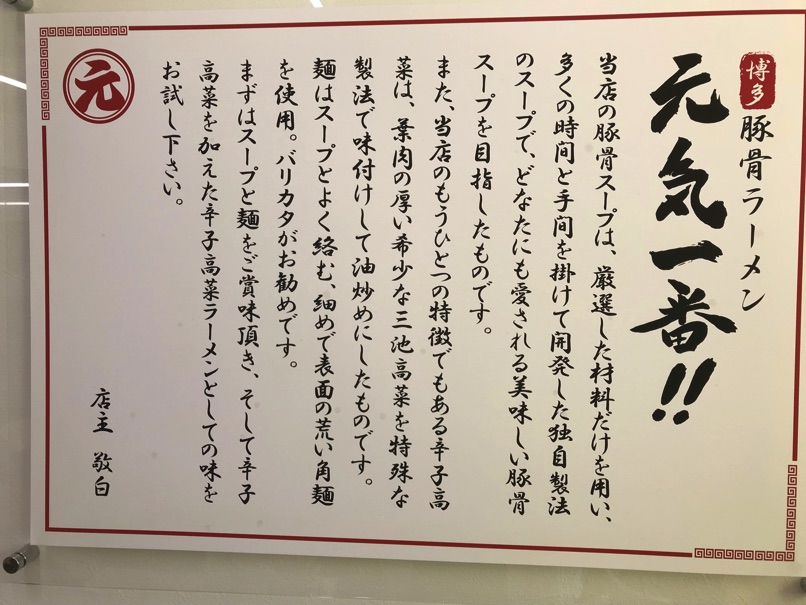 博多
豚骨ラーメン
元気一番!!
当店の豚骨スープは、厳選した材料だけを用い、
多くの時間と手間を掛けて開発した独自製法
のスープで、どなたにも愛される美味しい豚骨
スープを目指したものです。
また、当店のもうひとつの特徴でもある辛子高
菜は、葉肉の厚い希少な三池高菜を特殊な
製法で味付けして油炒めにしたものです。
麺はスープとよく絡む、細めで表面の荒い角麺
を使用。バリカタがお勧めです。
まずはスープと麺をご賞味頂き、そして辛子
高菜を加えた辛子高菜ラーメンとしての味を
お試し下さい。
店主 敬白
元